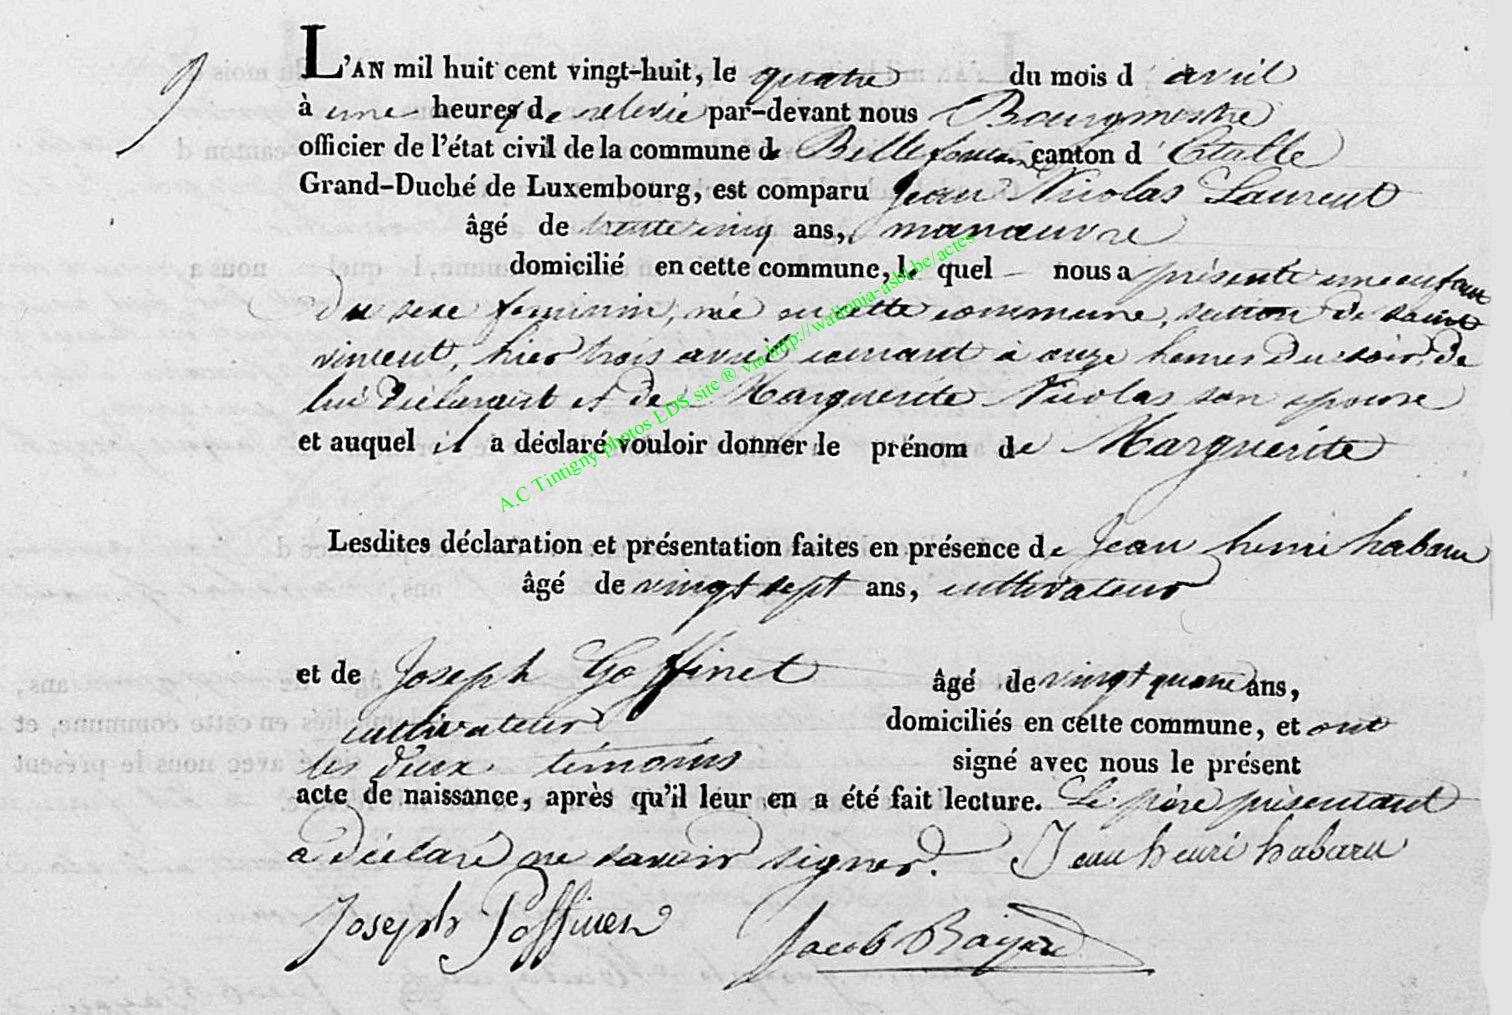 9
L'AN mil huit cent vingt-huit, le quatre du mois d'avril
à une heure de relevée par-devant nous Bourgmestre
officier de l'état civil de la commune de Bellefontaine canton d'Etalle
Grand-Duché de Luxembourg, est comparu Jean Nicolas Laurent
âgé de trente cinq ans, manœuvre
domicilié en cette commune, le quel nous a présenté un enfant
du sexe feminin, né en cette commune, section de saint
vincent, hier trois avril courant à onze heures du soir, de
lui déclarant et de Marguerite Nicolas son epouse
et auquel il a déclaré vouloir donner le prénom de Marguerite
A.C Tintigny photos LDS site ® via http://wallonia-asbl.be/actes
Lesdites déclaration et présentation faites en présence de Jean henri habaru
âgé de vingt sept ans, cultivateur
et de Joseph Goffinet âgé de vingt quatre ans,
cultivateur domiciliés en cette commune, et ont
les deux témoins signé avec nous le présent
acte de naissance, après qu'il leur en a été fait lecture. Le père présentant
a déclaré ne savoir signer. Jean henri habaru
Joseph Goffinet Jacob Bayard